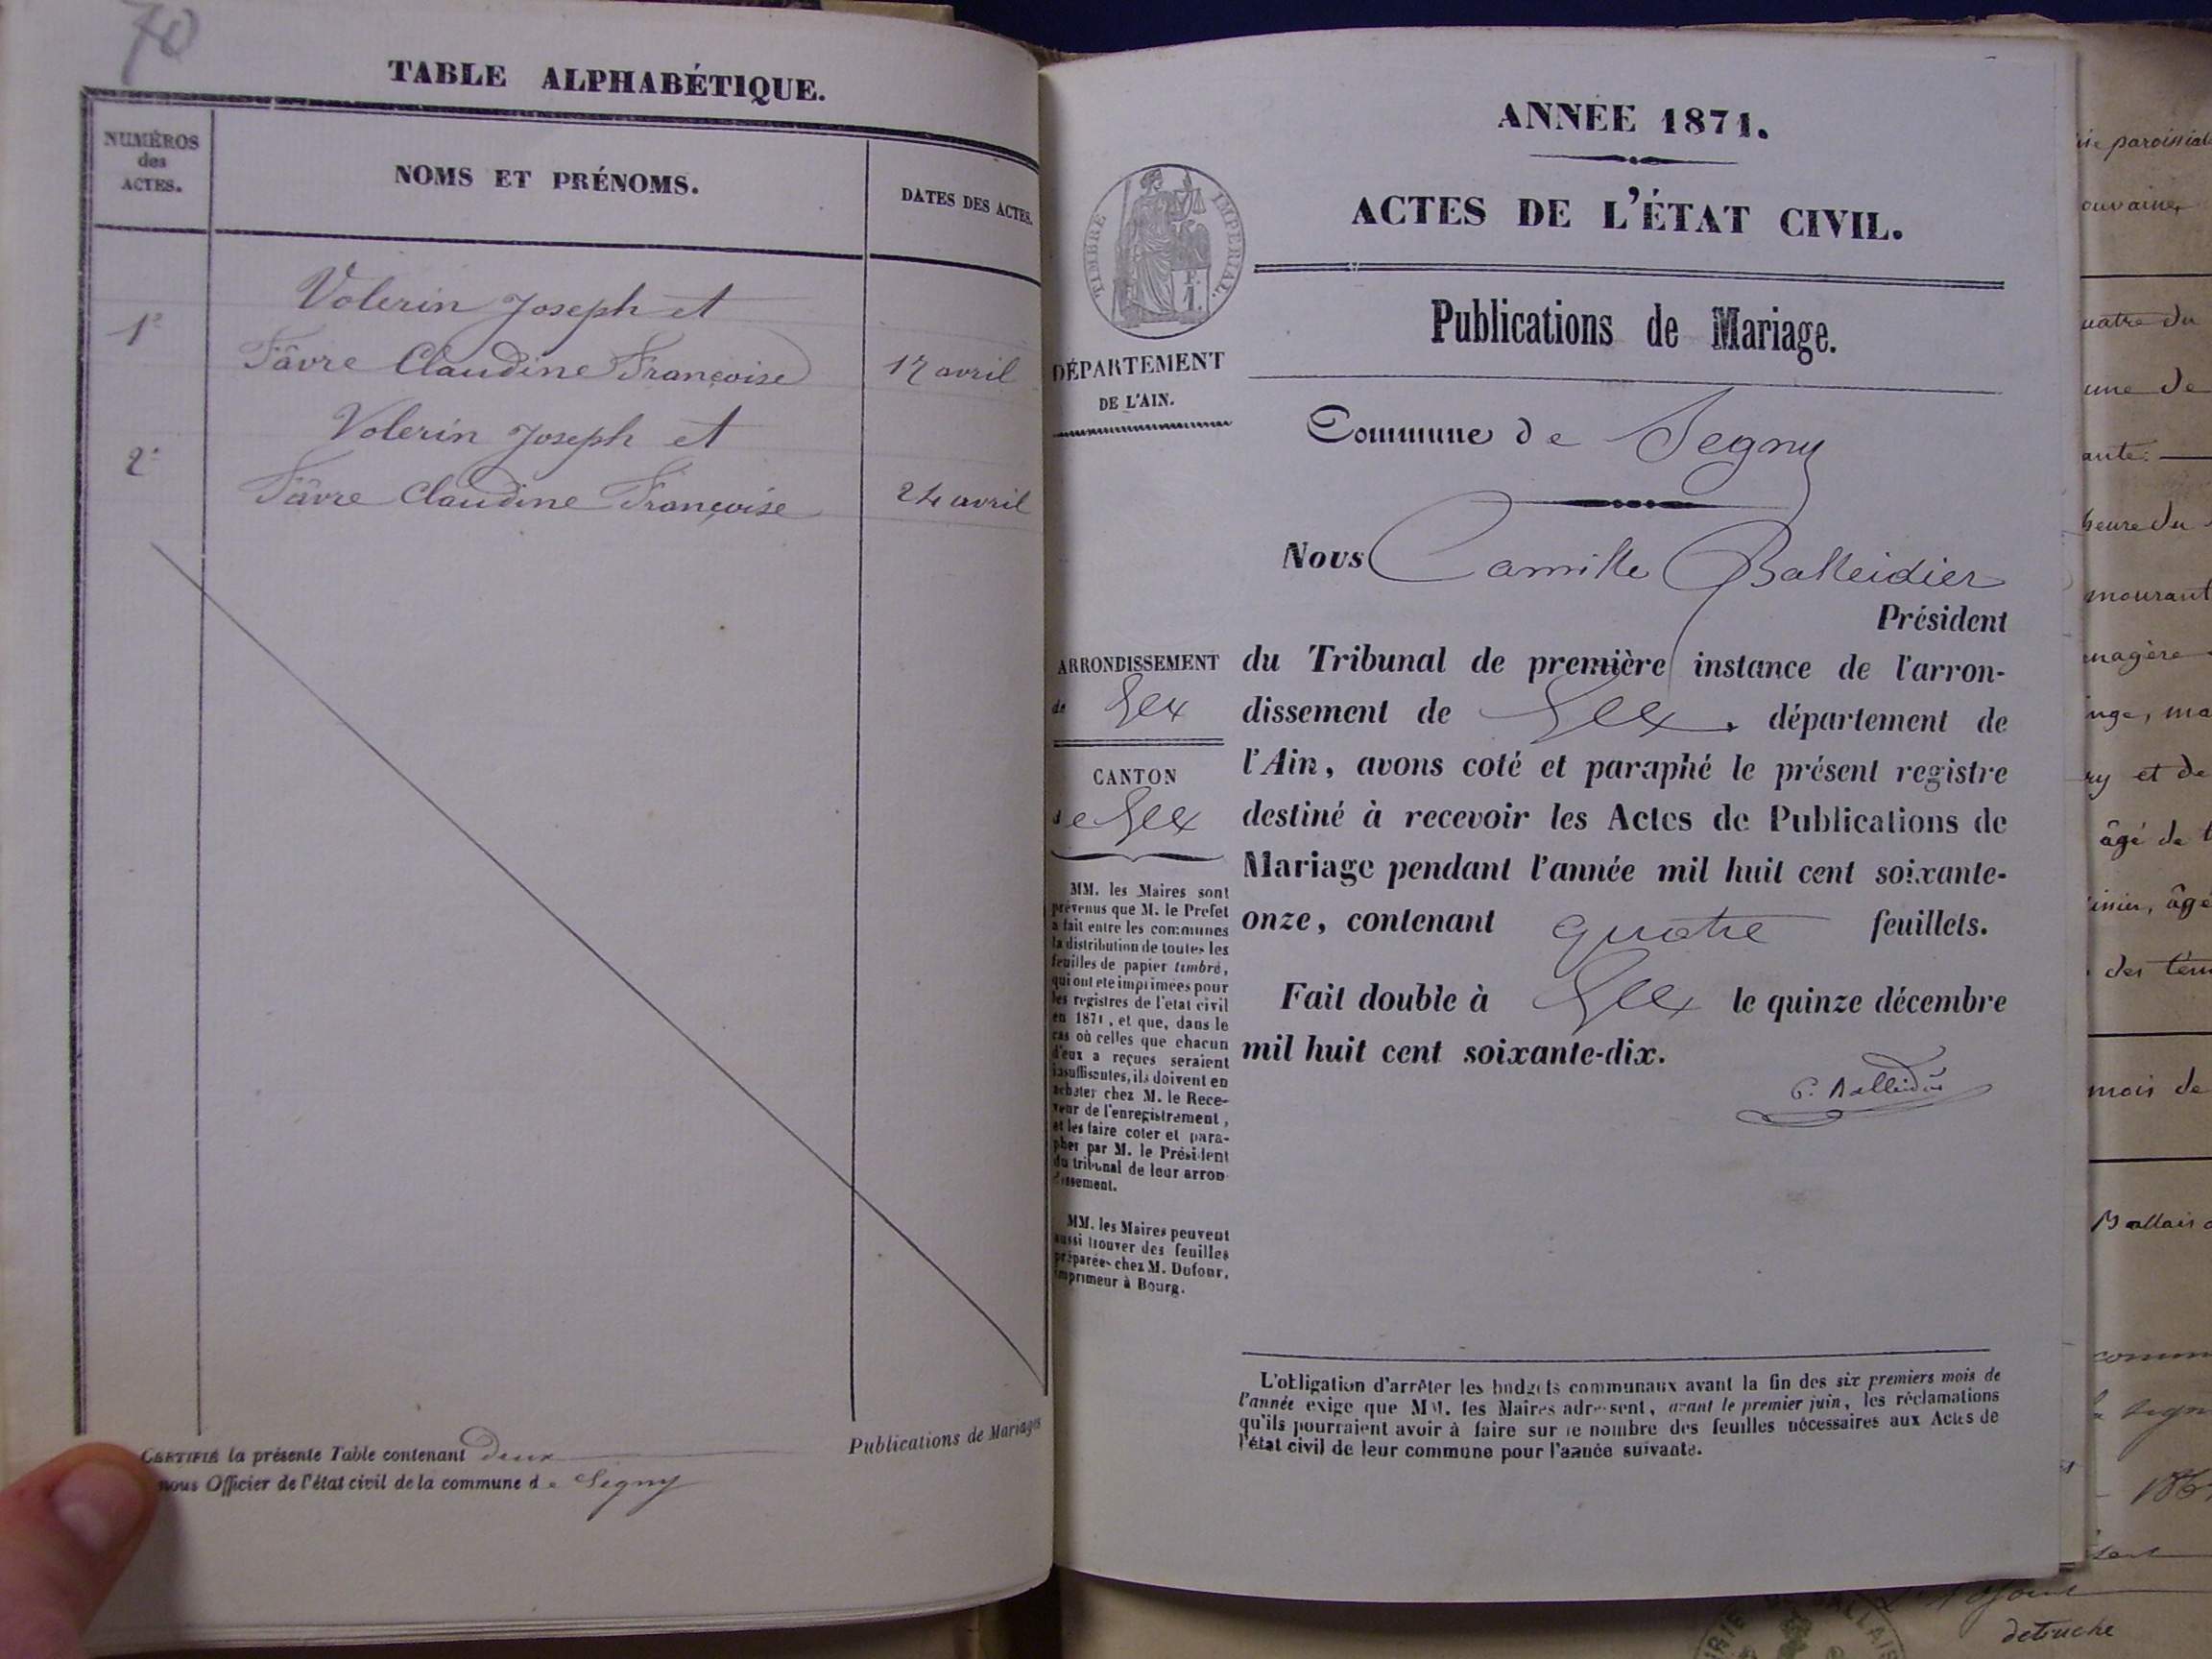 70
TABLE ALPHABÉTIQUE.
NUMÉROS
des
ACTES.
NOMS ET PRÉNOMS.
DATES DES ACTES.
Volerin Joseph et
1º
Fâvre Claudine Françoise
17 avril
Volerin Joseph et
2º
Fâvre Claudine Françoise
24 avril
CERTIFIÉ la présente Table contenant deux
Publications de Mariages
nous Officier de l'état civil de la commune de Segny
ANNÉE 1871.
ACTES DE L'ÉTAT CIVIL.
TIMBRE IMPERIAL.
Publications de Mariage.
DÉPARTEMENT
DE L'AIN.
Commune de Segny
Nous Camille Balleidier
Président
ARRONDISSEMENT
de Gex
CANTON
de Gex
du Tribunal de première instance de l'arron-
dissement de Gex, département de
l'Ain, avons coté et paraphé le présent registre
destiné à recevoir les Actes de Publications de
Mariage pendant l'année mil huit cent soixante-
onze, contenant quatre feuillets.
Fait double à Gex le quinze décembre
mil huit cent soixante-dix.
C. Balleidier
MM. les Maires sont
prévenus que M. le Préfet
a fait entre les communes
la distribution de toutes les
feuilles de papier timbré,
qui ont été imprimées pour
les registres de l'état civil
en 1871, et que, dans le
cas où celles que chacun
d'eux a reçues seraient
insuffisantes, ils doivent en
acheter chez M. le Rece-
veur de l'enregistrement,
et les faire coter et para-
pher par M. le Président
du tribunal de leur arron-
dissement.
MM. les Maires peuvent
aussi trouver des feuilles
préparées chez M. Dufour,
imprimeur à Bourg.
L'obligation d'arrêter les budgets communaux avant la fin des six premiers mois de
l'année exige que MM. les Maires adressent, avant le premier juin, les réclamations
qu'ils pourraient avoir à faire sur le nombre des feuilles nécessaires aux Actes de
l'état civil de leur commune pour l'année suivante.
paroissial
quatre du
une de
heure du
mourant
ry et de
âgé de
âgé
des tém
mois de
Ballais
detruche